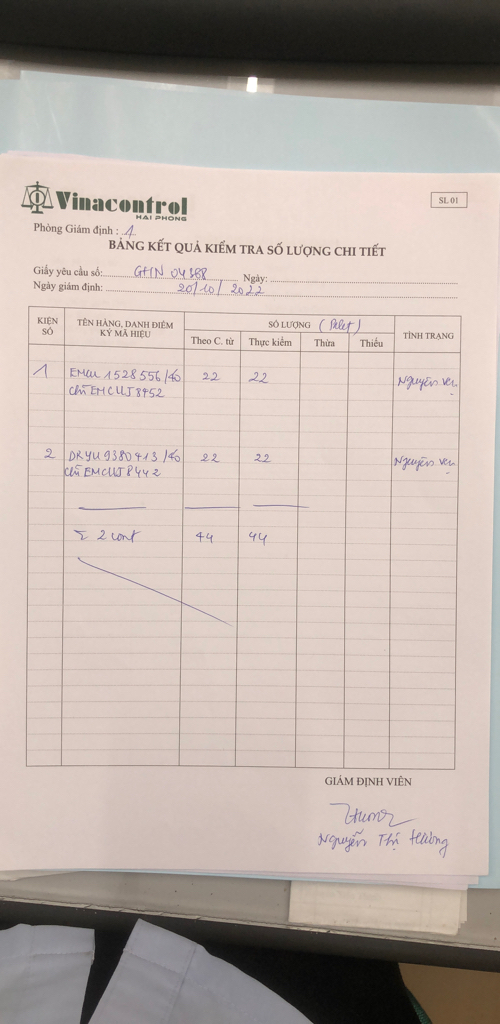 Vinacontrol
HAI PHONG
SL 01
Phòng Giám định : 1
BẢNG KẾT QUẢ KIỂM TRA SỐ LƯỢNG CHI TIẾT
Giấy yêu cầu số: GHN 04388 Ngày:
Ngày giám định: 20/10/2022
KIỆN SỐ TÊN HÀNG, DANH ĐIỂM KÝ MÃ HIỆU SỐ LƯỢNG (Palet) TÌNH TRẠNG
Theo C. từ Thực kiểm Thừa Thiếu
1 EMCU 1528556/40 22 22 Nguyên vẹn
chì EMCUJ8452
2 DRYU 9380413/40 22 22 Nguyên vẹn
chì EMCUJ8442
Σ 2 cont 44 44
GIÁM ĐỊNH VIÊN
Nguyễn Thị Hường